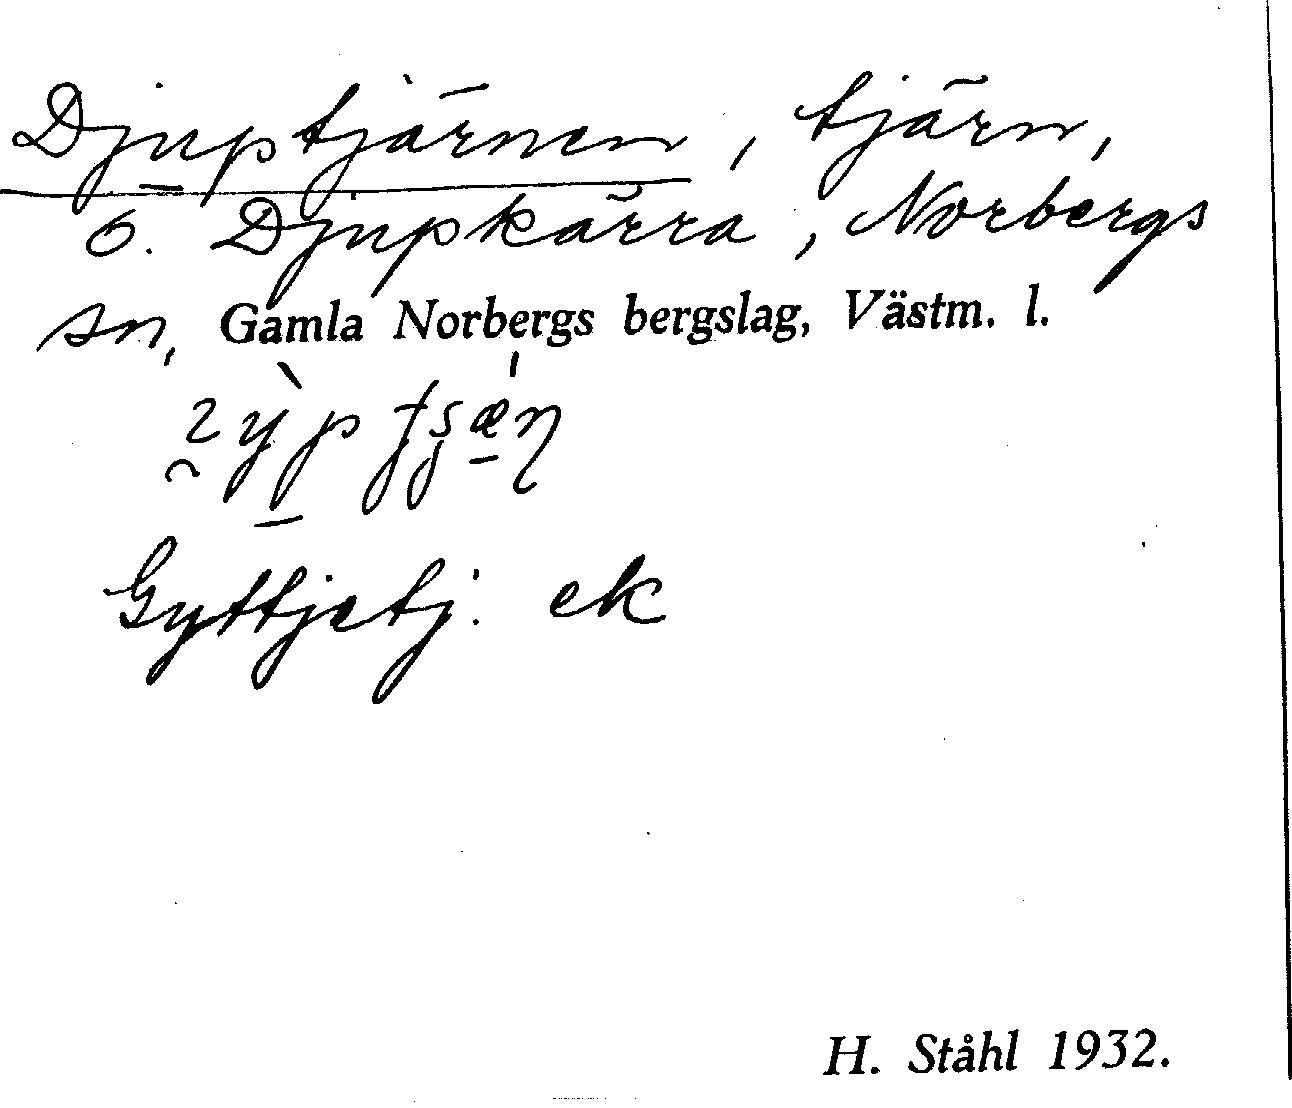 Djuptjärnen, tjärn,
ö. Djupkärra, Norbergs
sn, Gamla Norbergs bergslag, Västm. l.
Gyttjetj. ek
H. Ståhl 1932.